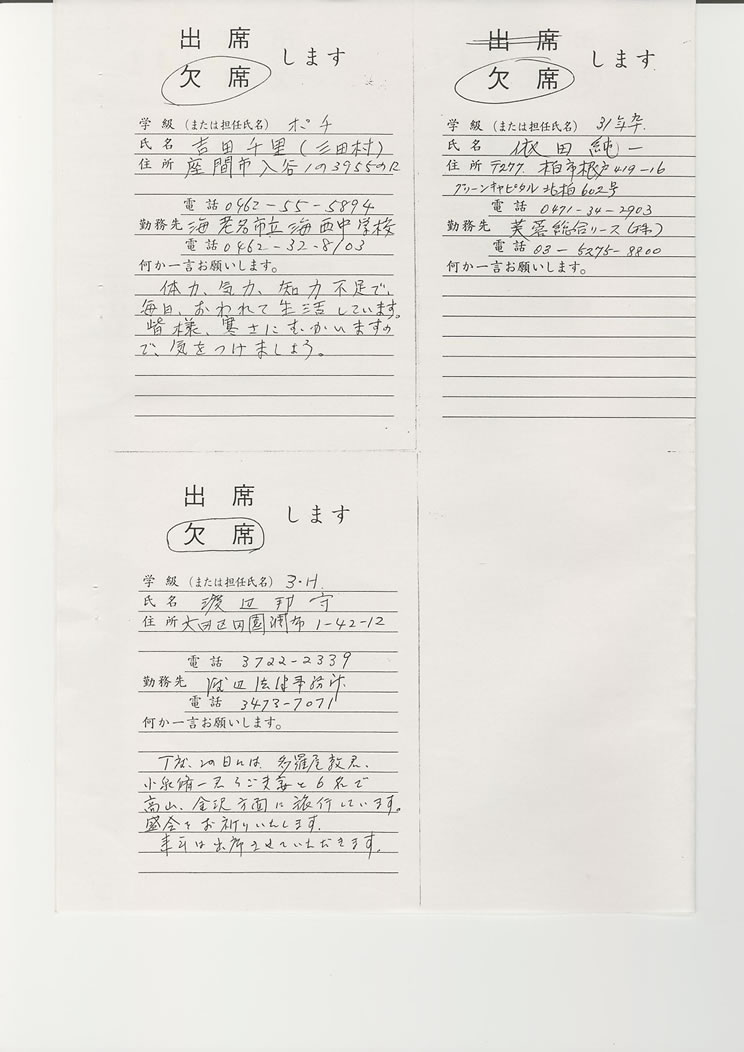 出席
欠席
します
学級（または担任氏名） ポチ
氏名 吉田千里（三田村）
住所 座間市入谷1の3955の12
電話 0462-55-5894
勤務先 海老名市立海西中学校
電話 0462-32-8103
何か一言お願いします。
体力、気力、知力不足で、
毎日、おわれて生活しています。
皆様、寒さにむかいますの
で、気をつけましょう。
出席
欠席
します
学級（または担任氏名） 31年卒
氏名 依田純一
住所 〒277 柏市根戸419-16
グリーンキャピタル北柏602号
電話 0471-34-2903
勤務先 芙蓉総合リース（株）
電話 03-5275-8800
何か一言お願いします。
出席
欠席
します
学級（または担任氏名） 3・H
氏名 渡辺邦守
住所 大田区田園調布1-42-12
電話 3722-2339
勤務先 渡辺法律事務所
電話 3473-7071
何か一言お願いします。
丁度この日には、多羅尾敦君、
小泉脩一君らご夫妻と6名で
高山、金沢方面に旅行しています。
盛会をお祈りいたします。
来年は出席させていただきます。